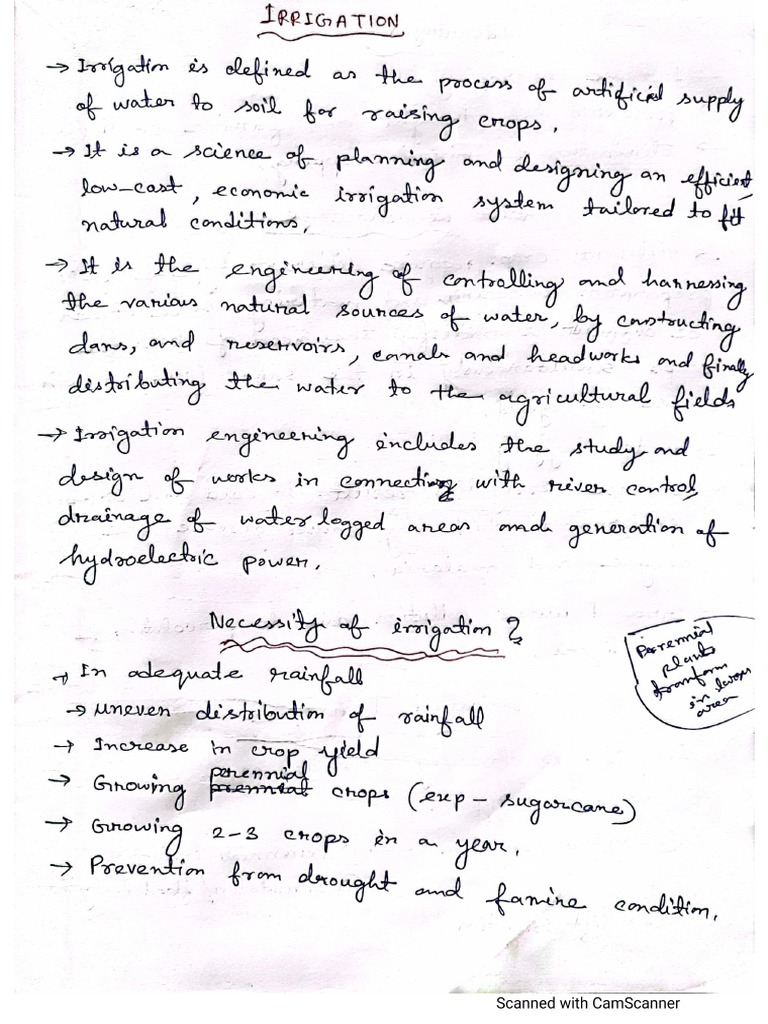 IRRIGATION
→ Irrigation is defined as the process of artificial supply
of water to soil for raising crops.
→ It is a science of planning and designing an efficient
low-cost, economic irrigation system tailored to fit
natural conditions.
→ It is the engineering of controlling and harnessing
the various natural sources of water, by constructing
dans, and reservoirs, canals and headworks and finally
distributing the water to the agricultural fields
→ Irrigation engineering includes the study and
design of works in connecting with river control,
drainage of water logged areas and generation of
hydroelectric power.
Necessity of irrigation ?
→ In adequate rainfall
→ uneven distribution of rainfall
→ Increase in crop yield
→ Growing perennial crops (exp - sugarcane)
→ Growing 2-3 crops in a year.
→ Prevention from drought and famine condition.
Perennial
plants
in
area
Scanned with CamScanner